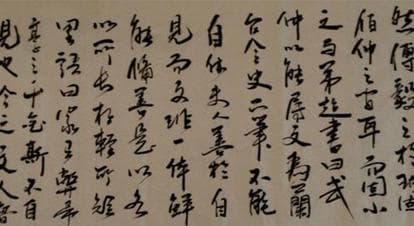 然傅毅之於班固
伯仲之间耳而固小
之与弟超書曰武
仲以能属文为蘭
台令史下筆不能
自休夫人善於自
見而文非一体鲜
能備善是以各
以所长相輕所短
里語曰家有弊帚
享之千金斯不自
見也今之文人魯